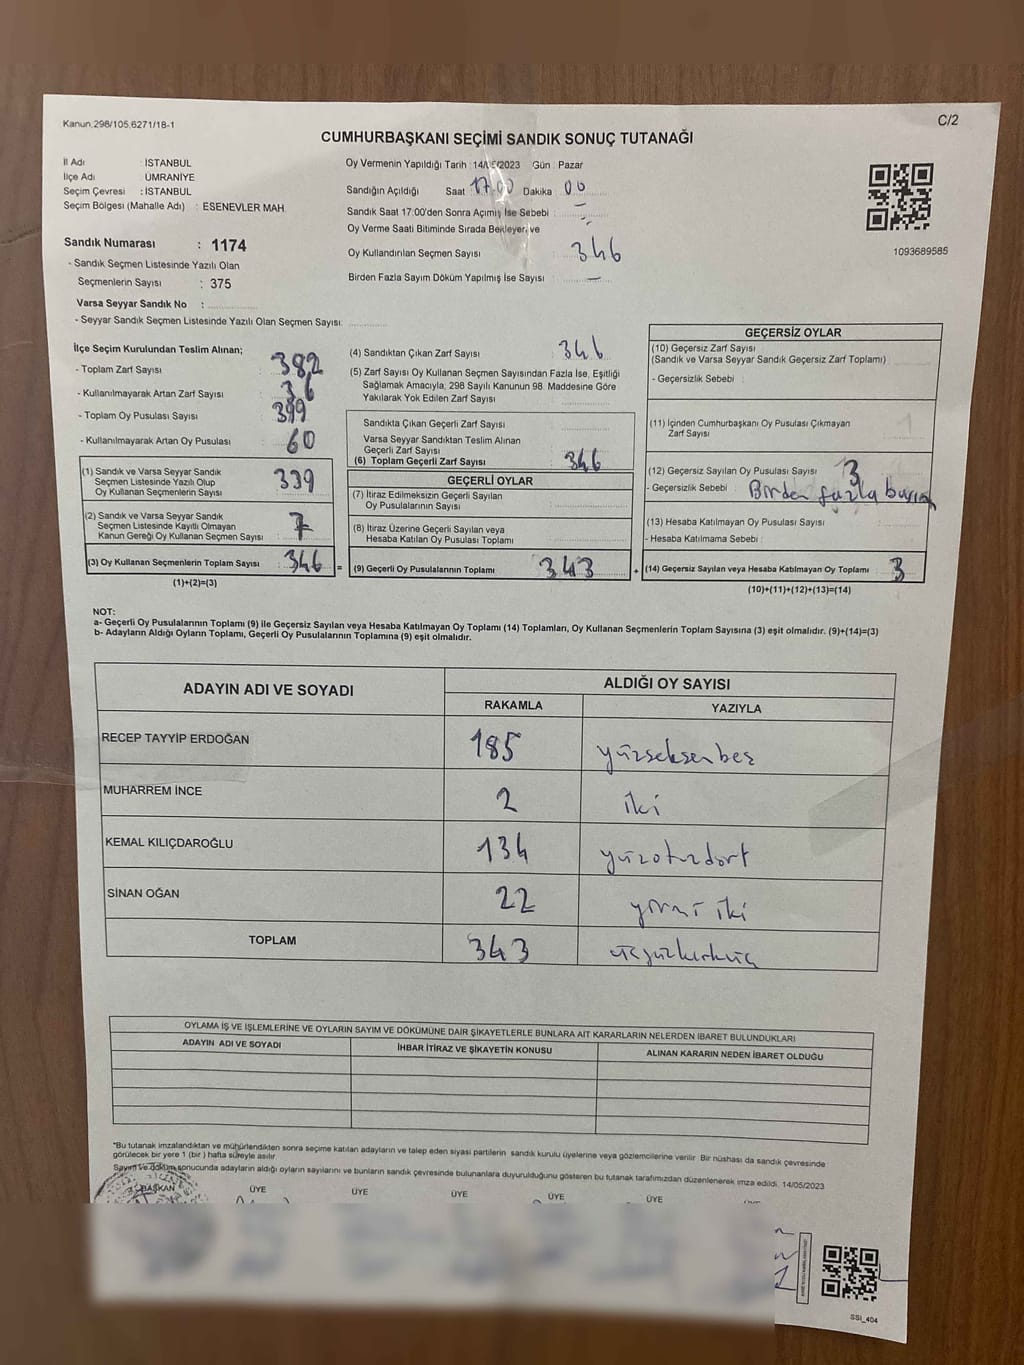 Kanun.298/105.6271/18-1
C/2
CUMHURBAŞKANI SEÇİMİ SANDIK SONUÇ TUTANAĞI
İl Adı : İSTANBUL
İlçe Adı : ÜMRANİYE
Seçim Çevresi : İSTANBUL
Seçim Bölgesi (Mahalle Adı) : ESENEVLER MAH.
Sandık Numarası : 1174
- Sandık Seçmen Listesinde Yazılı Olan
Seçmenlerin Sayısı : 375
Varsa Seyyar Sandık No :
- Seyyar Sandık Seçmen Listesinde Yazılı Olan Seçmen Sayısı:
Oy Vermenin Yapıldığı Tarih : 14/05/2023 Gün : Pazar
Sandığın Açıldığı Saat : 17:00 Dakika : 00
Sandık Saat 17:00'den Sonra Açılmış İse Sebebi :
Oy Verme Saati Bitiminde Sırada Bekleyen ve
Oy Kullandırılan Seçmen Sayısı : 346
Birden Fazla Sayım Döküm Yapılmış İse Sayısı : —
1093689585
İlçe Seçim Kurulundan Teslim Alınan;
- Toplam Zarf Sayısı : 382
- Kullanılmayarak Artan Zarf Sayısı : 36
- Toplam Oy Pusulası Sayısı : 399
- Kullanılmayarak Artan Oy Pusulası : 60
(1) Sandık ve Varsa Seyyar Sandık
Seçmen Listesinde Yazılı Olup
Oy Kullanan Seçmenlerin Sayısı : 339
(2) Sandık ve Varsa Seyyar Sandık
Seçmen Listesinde Kayıtlı Olmayan
Kanun Gereği Oy Kullanan Seçmen Sayısı : 7
(3) Oy Kullanan Seçmenlerin Toplam Sayısı : 346
(1)+(2)=(3)
(4) Sandıktan Çıkan Zarf Sayısı : 346
(5) Zarf Sayısı Oy Kullanan Seçmen Sayısından Fazla İse, Eşitliği
Sağlamak Amacıyla, 298 Sayılı Kanunun 98. Maddesine Göre
Yakılarak Yok Edilen Zarf Sayısı :
Sandıkta Çıkan Geçerli Zarf Sayısı :
Varsa Seyyar Sandıktan Teslim Alınan
Geçerli Zarf Sayısı :
(6) Toplam Geçerli Zarf Sayısı : 346
GEÇERLİ OYLAR
(7) İtiraz Edilmeksizin Geçerli Sayılan
Oy Pusulasının Sayısı :
(8) İtiraz Üzerine Geçerli Sayılan veya
Hesaba Katılan Oy Pusulası Toplamı :
= (9) Geçerli Oy Pusulalarının Toplamı : 343
GEÇERSİZ OYLAR
(10) Geçersiz Zarf Sayısı
(Sandık ve Varsa Seyyar Sandık Geçersiz Zarf Toplamı) :
- Geçersizlik Sebebi :
(11) İçinden Cumhurbaşkanı Oy Pusulası Çıkmayan
Zarf Sayısı :
(12) Geçersiz Sayılan Oy Pusulası Sayısı : 3
- Geçersizlik Sebebi : Birden fazla basım
(13) Hesaba Katılmayan Oy Pusulası Sayısı :
- Hesaba Katılmama Sebebi :
+ (14) Geçersiz Sayılan veya Hesaba Katılmayan Oy Toplamı : 3
(10)+(11)+(12)+(13)=(14)
NOT:
a- Geçerli Oy Pusulalarının Toplamı (9) ile Geçersiz Sayılan veya Hesaba Katılmayan Oy Toplamı (14) Toplamları, Oy Kullanan Seçmenlerin Toplam Sayısına (3) eşit olmalıdır. (9)+(14)=(3)
b- Adayların Aldığı Oyların Toplamı, Geçerli Oy Pusulalarının Toplamına (9) eşit olmalıdır.
ADAYIN ADI VE SOYADI ALDIĞI OY SAYISI
RAKAMLA YAZIYLA
RECEP TAYYİP ERDOĞAN 185 yüzseksenbeş
MUHARREM İNCE 2 iki
KEMAL KILIÇDAROĞLU 134 yüzotuzdört
SİNAN OĞAN 22 yirmi iki
TOPLAM 343 üçyüzkırküç
OYLAMA İŞ VE İŞLEMLERİNE VE OYLARIN SAYIM VE DÖKÜMÜNE DAİR ŞİKAYETLERLE BUNLARA AİT KARARLARIN NELERDEN İBARET BULUNDUKLARI
ADAYIN ADI VE SOYADI İHBAR İTİRAZ VE ŞİKAYETİN KONUSU ALINAN KARARIN NEDEN İBARET OLDUĞU
*Bu tutanak imzalandıktan ve mühürlendikten sonra seçime katılan adayların ve talep eden siyasi partilerin sandık kurulu üyelerine veya gözlemcilerine verilir. Bir nüshası da sandık çevresinde
görülecek bir yere 1 (bir ) hafta süreyle asılır.
Sayım ve döküm sonucunda adayların aldığı oyların sayılarını ve bunların sandık çevresinde bulunanlara duyurulduğunu gösteren bu tutanak tarafımızdan düzenlenerek imza edildi. 14/05/2023
BAŞKAN ÜYE ÜYE ÜYE ÜYE ÜYE
SSI_404